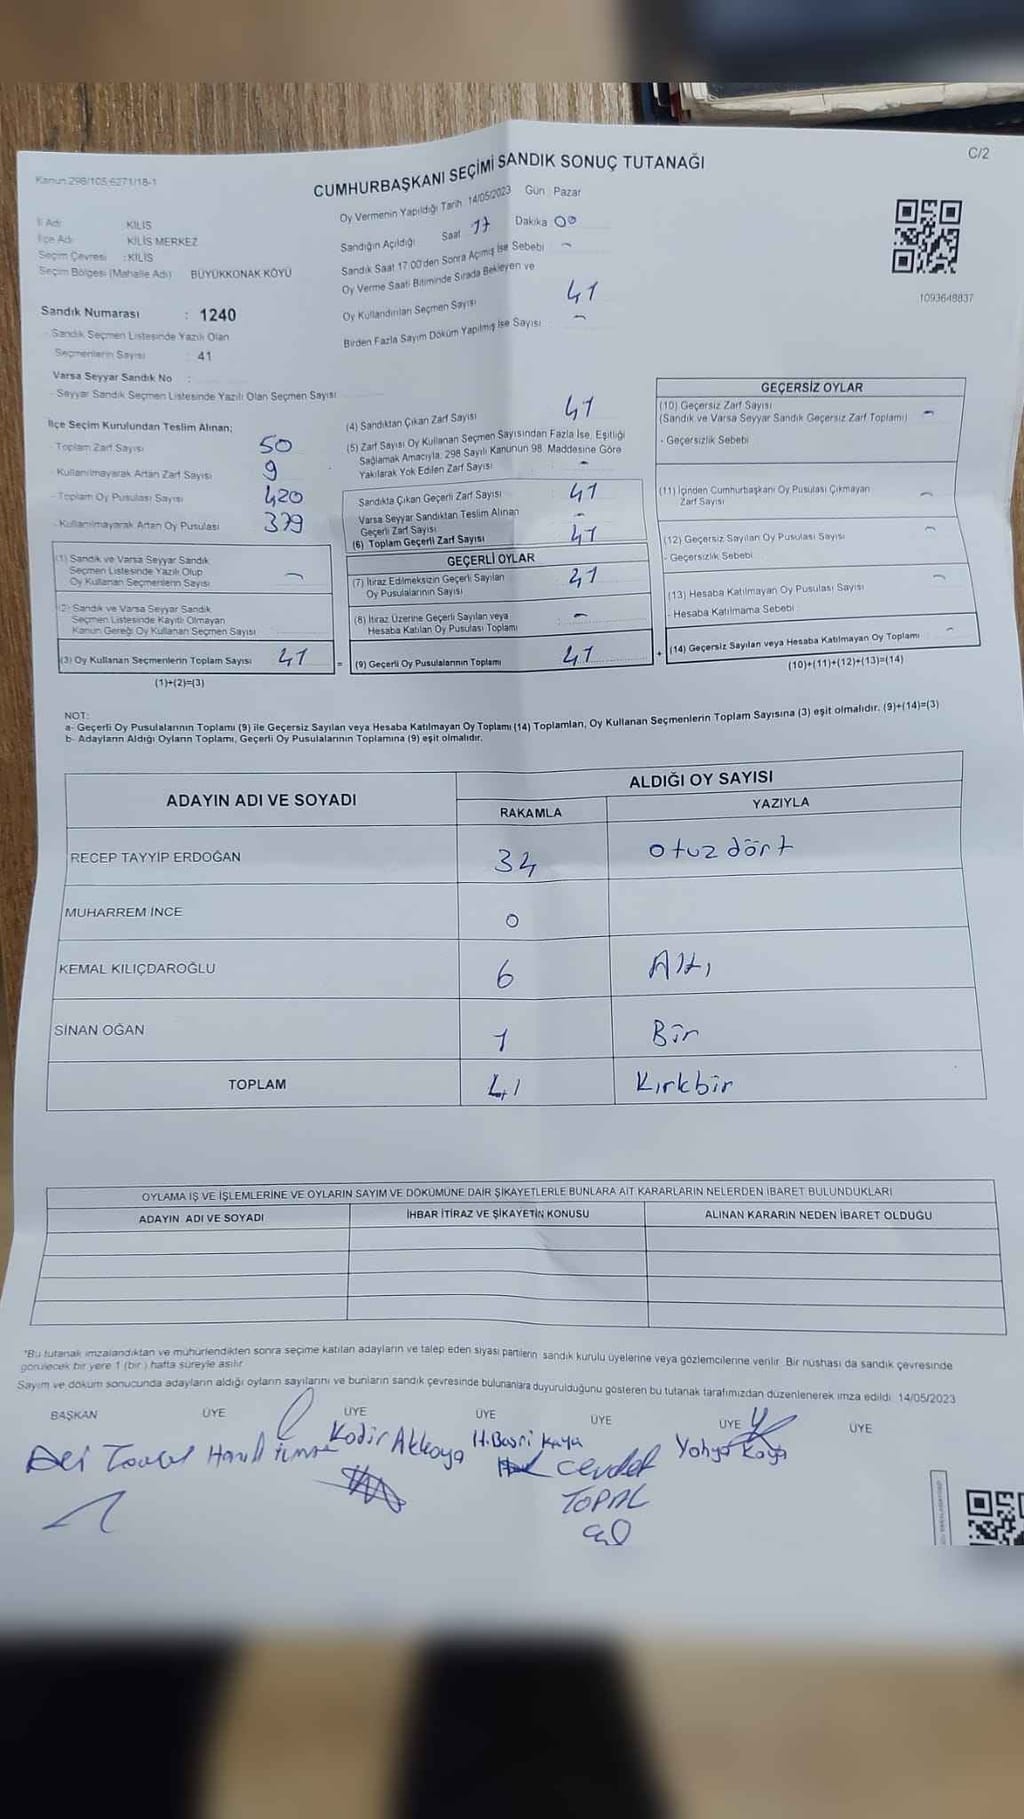 C/2
Kanun 298/105,6271/18-1
CUMHURBAŞKANI SEÇİMİ SANDIK SONUÇ TUTANAĞI
Oy Vermenin Yapıldığı Tarih 14/05/2023 Gün Pazar
İl Adı KİLİS
İlçe Adı KİLİS MERKEZ
Seçim Çevresi : KİLİS
Seçim Bölgesi (Mahalle Adı) BÜYÜKKONAK KÖYÜ
Sandığın Açıldığı Saat 17 Dakika 00
Sandık Saat 17:00'den Sonra Açılmış İse Sebebi
Oy Verme Saati Bitiminde Sırada Bekleyen ve
Oy Kullandırılan Seçmen Sayısı 41
Birden Fazla Sayım Döküm Yapılmış İse Sayısı
1093648837
Sandık Numarası : 1240
Sandık Seçmen Listesinde Yazılı Olan
Seçmenlerin Sayısı : 41
Varsa Seyyar Sandık No :
- Seyyar Sandık Seçmen Listesinde Yazılı Olan Seçmen Sayısı
İlçe Seçim Kurulundan Teslim Alınan;
Toplam Zarf Sayısı 50
- Kullanılmayarak Artan Zarf Sayısı 9
- Toplam Oy Pusulası Sayısı 420
- Kullanılmayarak Artan Oy Pusulası 379
(1) Sandık ve Varsa Seyyar Sandık
Seçmen Listesinde Yazılı Olup
Oy Kullanan Seçmenlerin Sayısı
(2) Sandık ve Varsa Seyyar Sandık
Seçmen Listesinde Kayıtlı Olmayan
Kanun Gereği Oy Kullanan Seçmen Sayısı
(3) Oy Kullanan Seçmenlerin Toplam Sayısı 41
(1)+(2)=(3)
(4) Sandıktan Çıkan Zarf Sayısı 41
(5) Zarf Sayısı Oy Kullanan Seçmen Sayısından Fazla İse, Eşitliği
Sağlamak Amacıyla, 298 Sayılı Kanunun 98. Maddesine Göre
Yakılarak Yok Edilen Zarf Sayısı
Sandıkta Çıkan Geçerli Zarf Sayısı 41
Varsa Seyyar Sandıktan Teslim Alınan
Geçerli Zarf Sayısı
(6) Toplam Geçerli Zarf Sayısı 41
GEÇERLİ OYLAR
(7) İtiraz Edilmeksizin Geçerli Sayılan
Oy Pusulalarının Sayısı 41
(8) İtiraz Üzerine Geçerli Sayılan veya
Hesaba Katılan Oy Pusulası Toplamı
= (9) Geçerli Oy Pusulalarının Toplamı 41
GEÇERSİZ OYLAR
(10) Geçersiz Zarf Sayısı
(Sandık ve Varsa Seyyar Sandık Geçersiz Zarf Toplamı)
- Geçersizlik Sebebi
(11) İçinden Cumhurbaşkanı Oy Pusulası Çıkmayan
Zarf Sayısı
(12) Geçersiz Sayılan Oy Pusulası Sayısı
- Geçersizlik Sebebi
(13) Hesaba Katılmayan Oy Pusulası Sayısı
- Hesaba Katılmama Sebebi
+ (14) Geçersiz Sayılan veya Hesaba Katılmayan Oy Toplamı
(10)+(11)+(12)+(13)=(14)
NOT:
a- Geçerli Oy Pusulalarının Toplamı (9) ile Geçersiz Sayılan veya Hesaba Katılmayan Oy Toplamı (14) Toplamları, Oy Kullanan Seçmenlerin Toplam Sayısına (3) eşit olmalıdır. (9)+(14)=(3)
b- Adayların Aldığı Oyların Toplamı, Geçerli Oy Pusulalarının Toplamına (9) eşit olmalıdır.
ADAYIN ADI VE SOYADI ALDIĞI OY SAYISI
RAKAMLA YAZIYLA
RECEP TAYYİP ERDOĞAN 34 Otuz dört
MUHARREM İNCE 0
KEMAL KILIÇDAROĞLU 6 Altı
SİNAN OĞAN 1 Bir
TOPLAM 41 Kırkbir
OYLAMA İŞ VE İŞLEMLERİNE VE OYLARIN SAYIM VE DÖKÜMÜNE DAİR ŞİKAYETLERLE BUNLARA AİT KARARLARIN NELERDEN İBARET BULUNDUKLARI
ADAYIN ADI VE SOYADI İHBAR İTİRAZ VE ŞİKAYETİN KONUSU ALINAN KARARIN NEDEN İBARET OLDUĞU
*Bu tutanak imzalandıktan ve mühürlendikten sonra seçime katılan adayların ve talep eden siyasi partilerin sandık kurulu üyelerine veya gözlemcilerine verilir. Bir nüshası da sandık çevresinde
görülecek bir yere 1 (bir ) hafta süreyle asılır.
Sayım ve döküm sonucunda adayların aldığı oyların sayılarını ve bunların sandık çevresinde bulunanlara duyurulduğunu gösteren bu tutanak tarafımızdan düzenlenerek imza edildi. 14/05/2023
BAŞKAN ÜYE ÜYE ÜYE ÜYE ÜYE ÜYE
Kadir Akkaya H.Basri Kaya Yahya Kaya
Cevdet
TOPAL